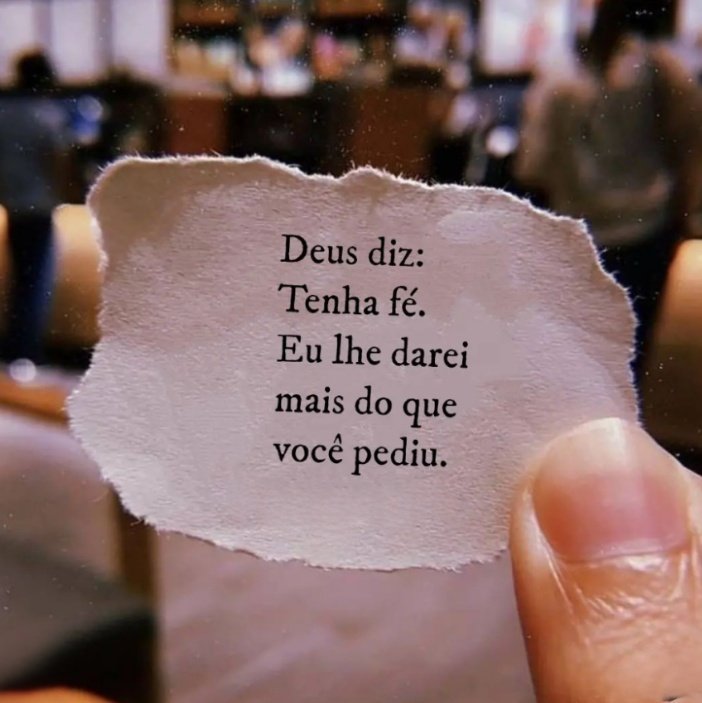 Deus diz:
Tenha fé.
Eu lhe darei
mais do que
você pediu.